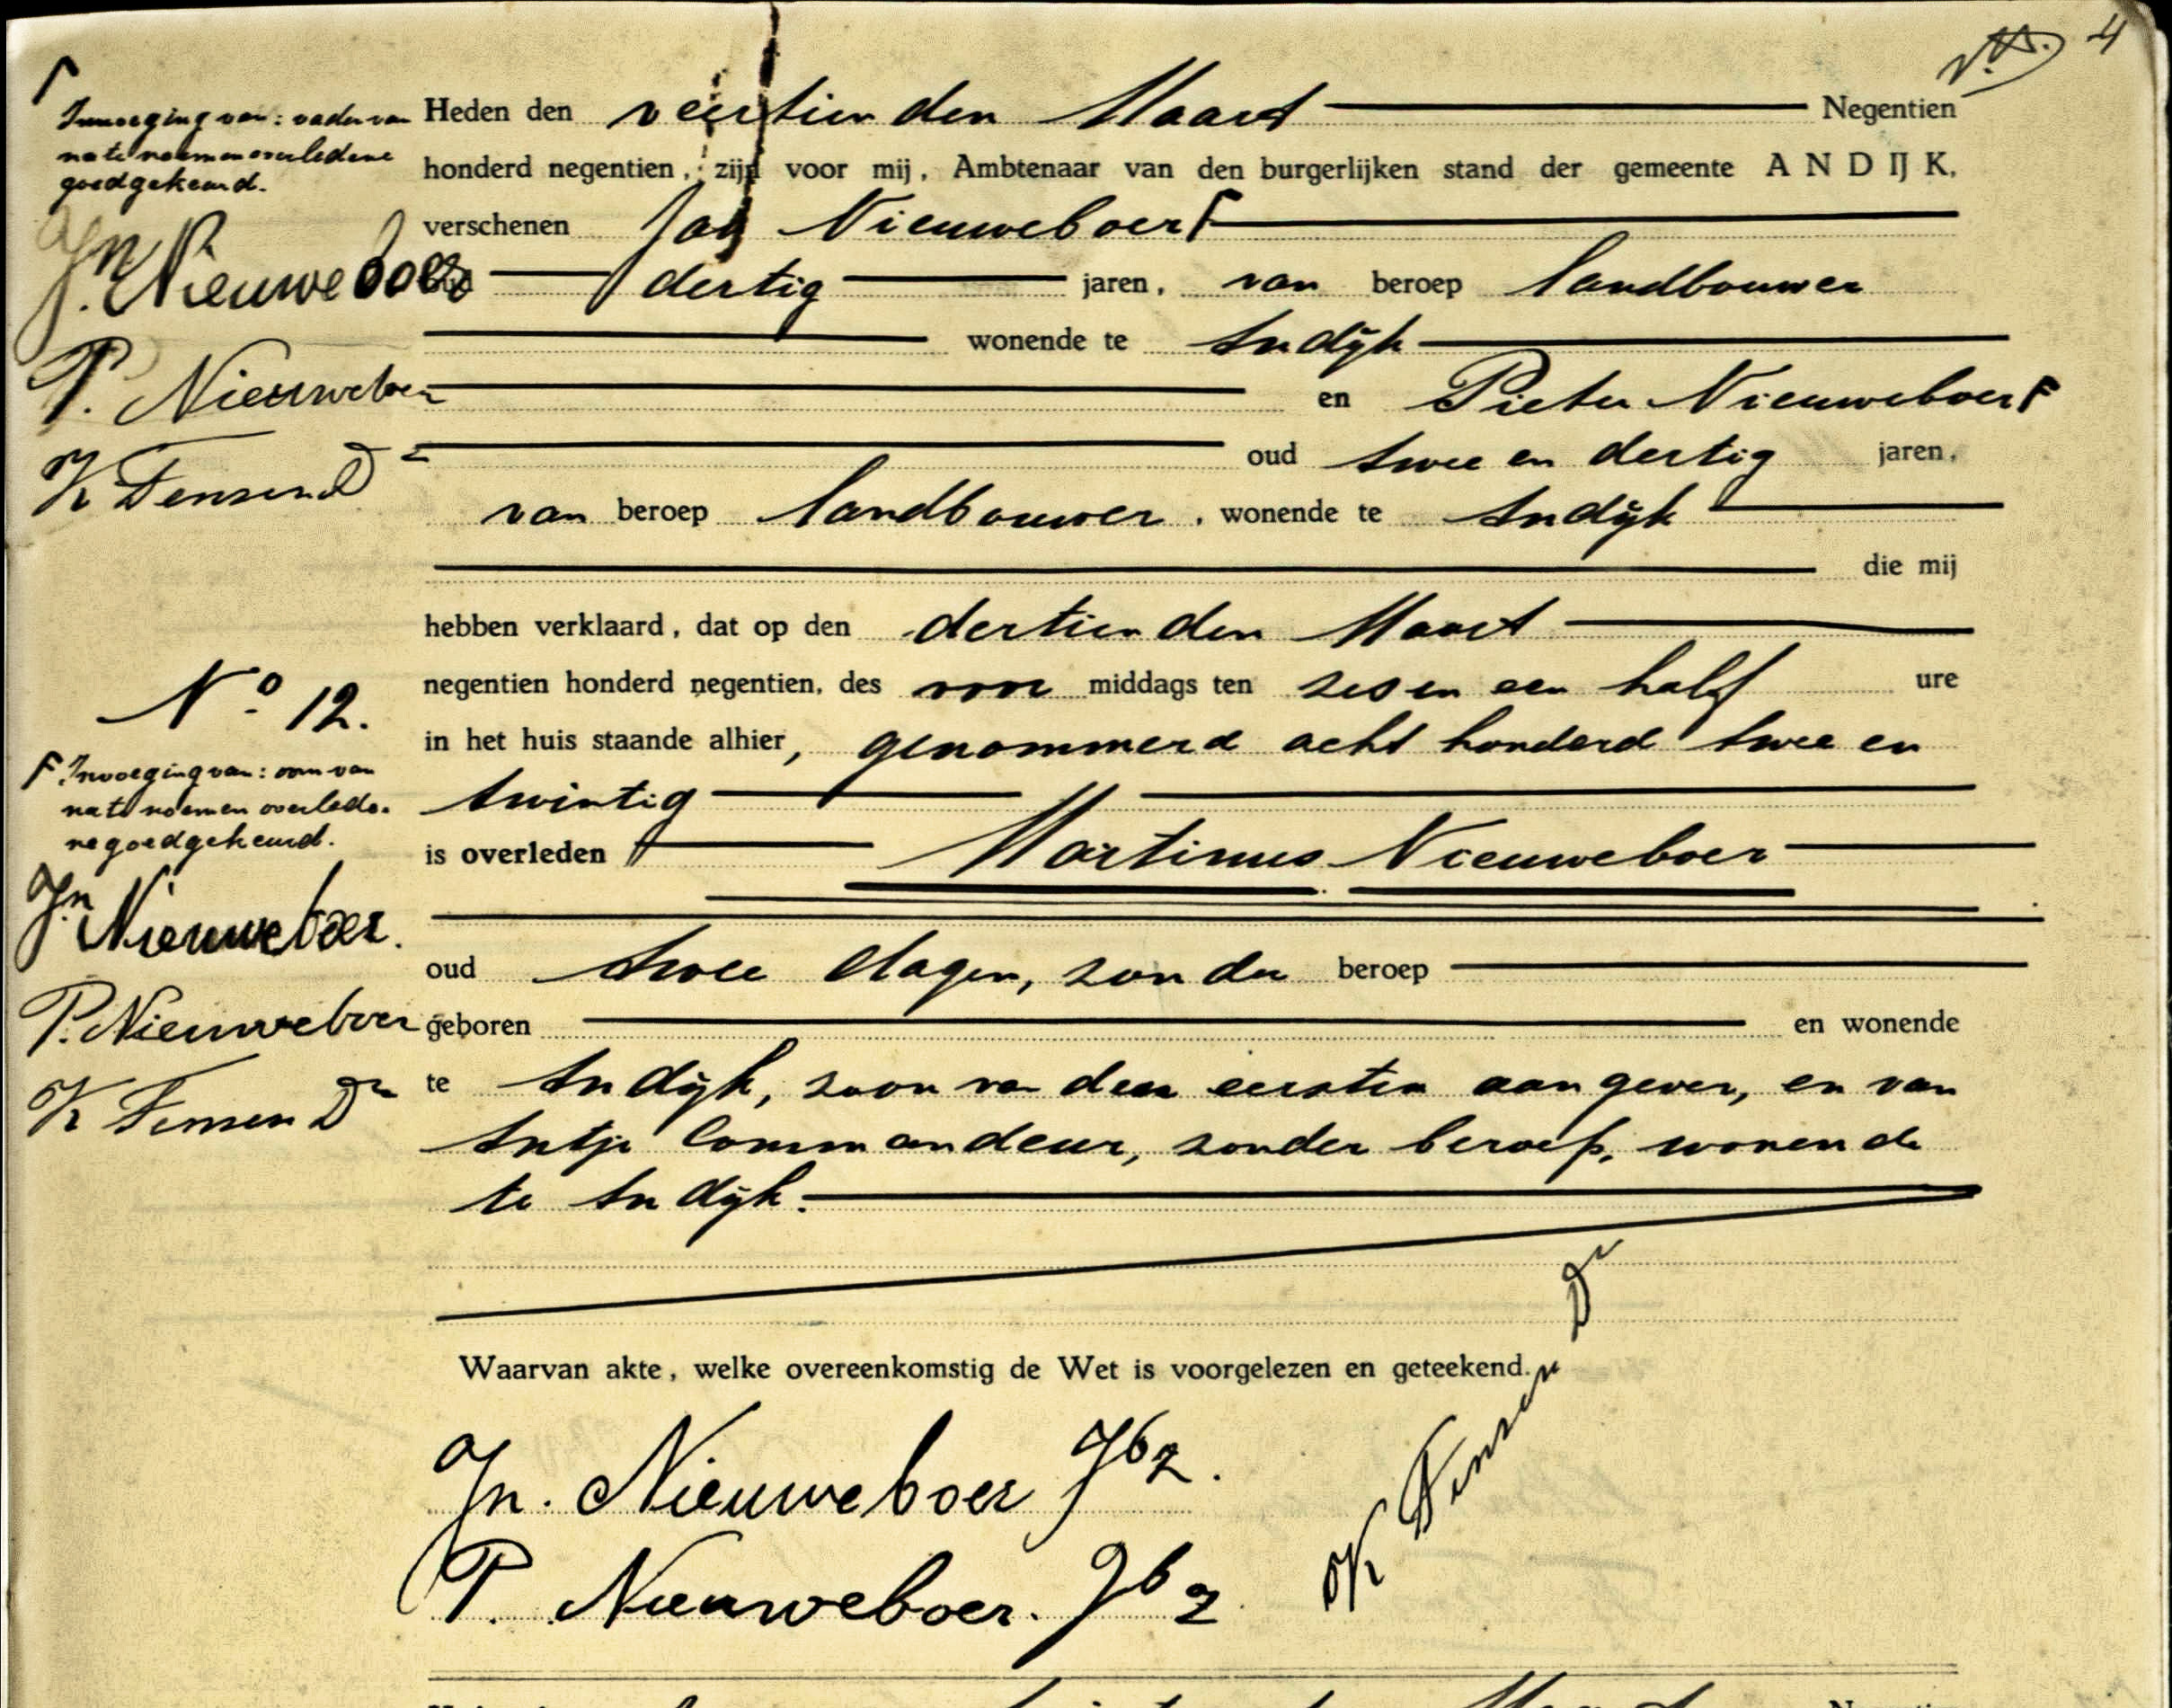 4
Heden den veertienden Maart Negentien
honderd negentien, zijn voor mij, Ambtenaar van den burgerlijken stand der gemeente ANDIJK,
verschenen Jan Nieuweboer Γ
oud dertig jaren, van beroep landbouwer
wonende te Andijk
en Pieter Nieuweboer F
oud twee en dertig jaren,
van beroep landbouwer, wonende te Andijk
die mij
hebben verklaard, dat op den dertienden Maart
negentien honderd negentien, des voor middags ten zes en een half ure
in het huis staande alhier, genommerd acht honderd twee en
twintig
is overleden Martinus Nieuweboer
oud twee dagen, zonder beroep
geboren en wonende
te Andijk, zoon van den eersten aangever, en van
Antje Commandeur, zonder beroep, wonende
te Andijk.
Waarvan akte, welke overeenkomstig de Wet is voorgelezen en geteekend.
Jn. Nieuweboer Jbz.
P. Nieuweboer. Jbz
Γ
Invoeging van: vader van
na te noemen overledene
goedgekeurd.
Jn. Nieuweboer
P. Nieuweboer
No 12.
F Invoeging van: oom van
na te noemen overlede-
ne goedgekeurd.
Jn. Nieuweboer.
P. Nieuweboer